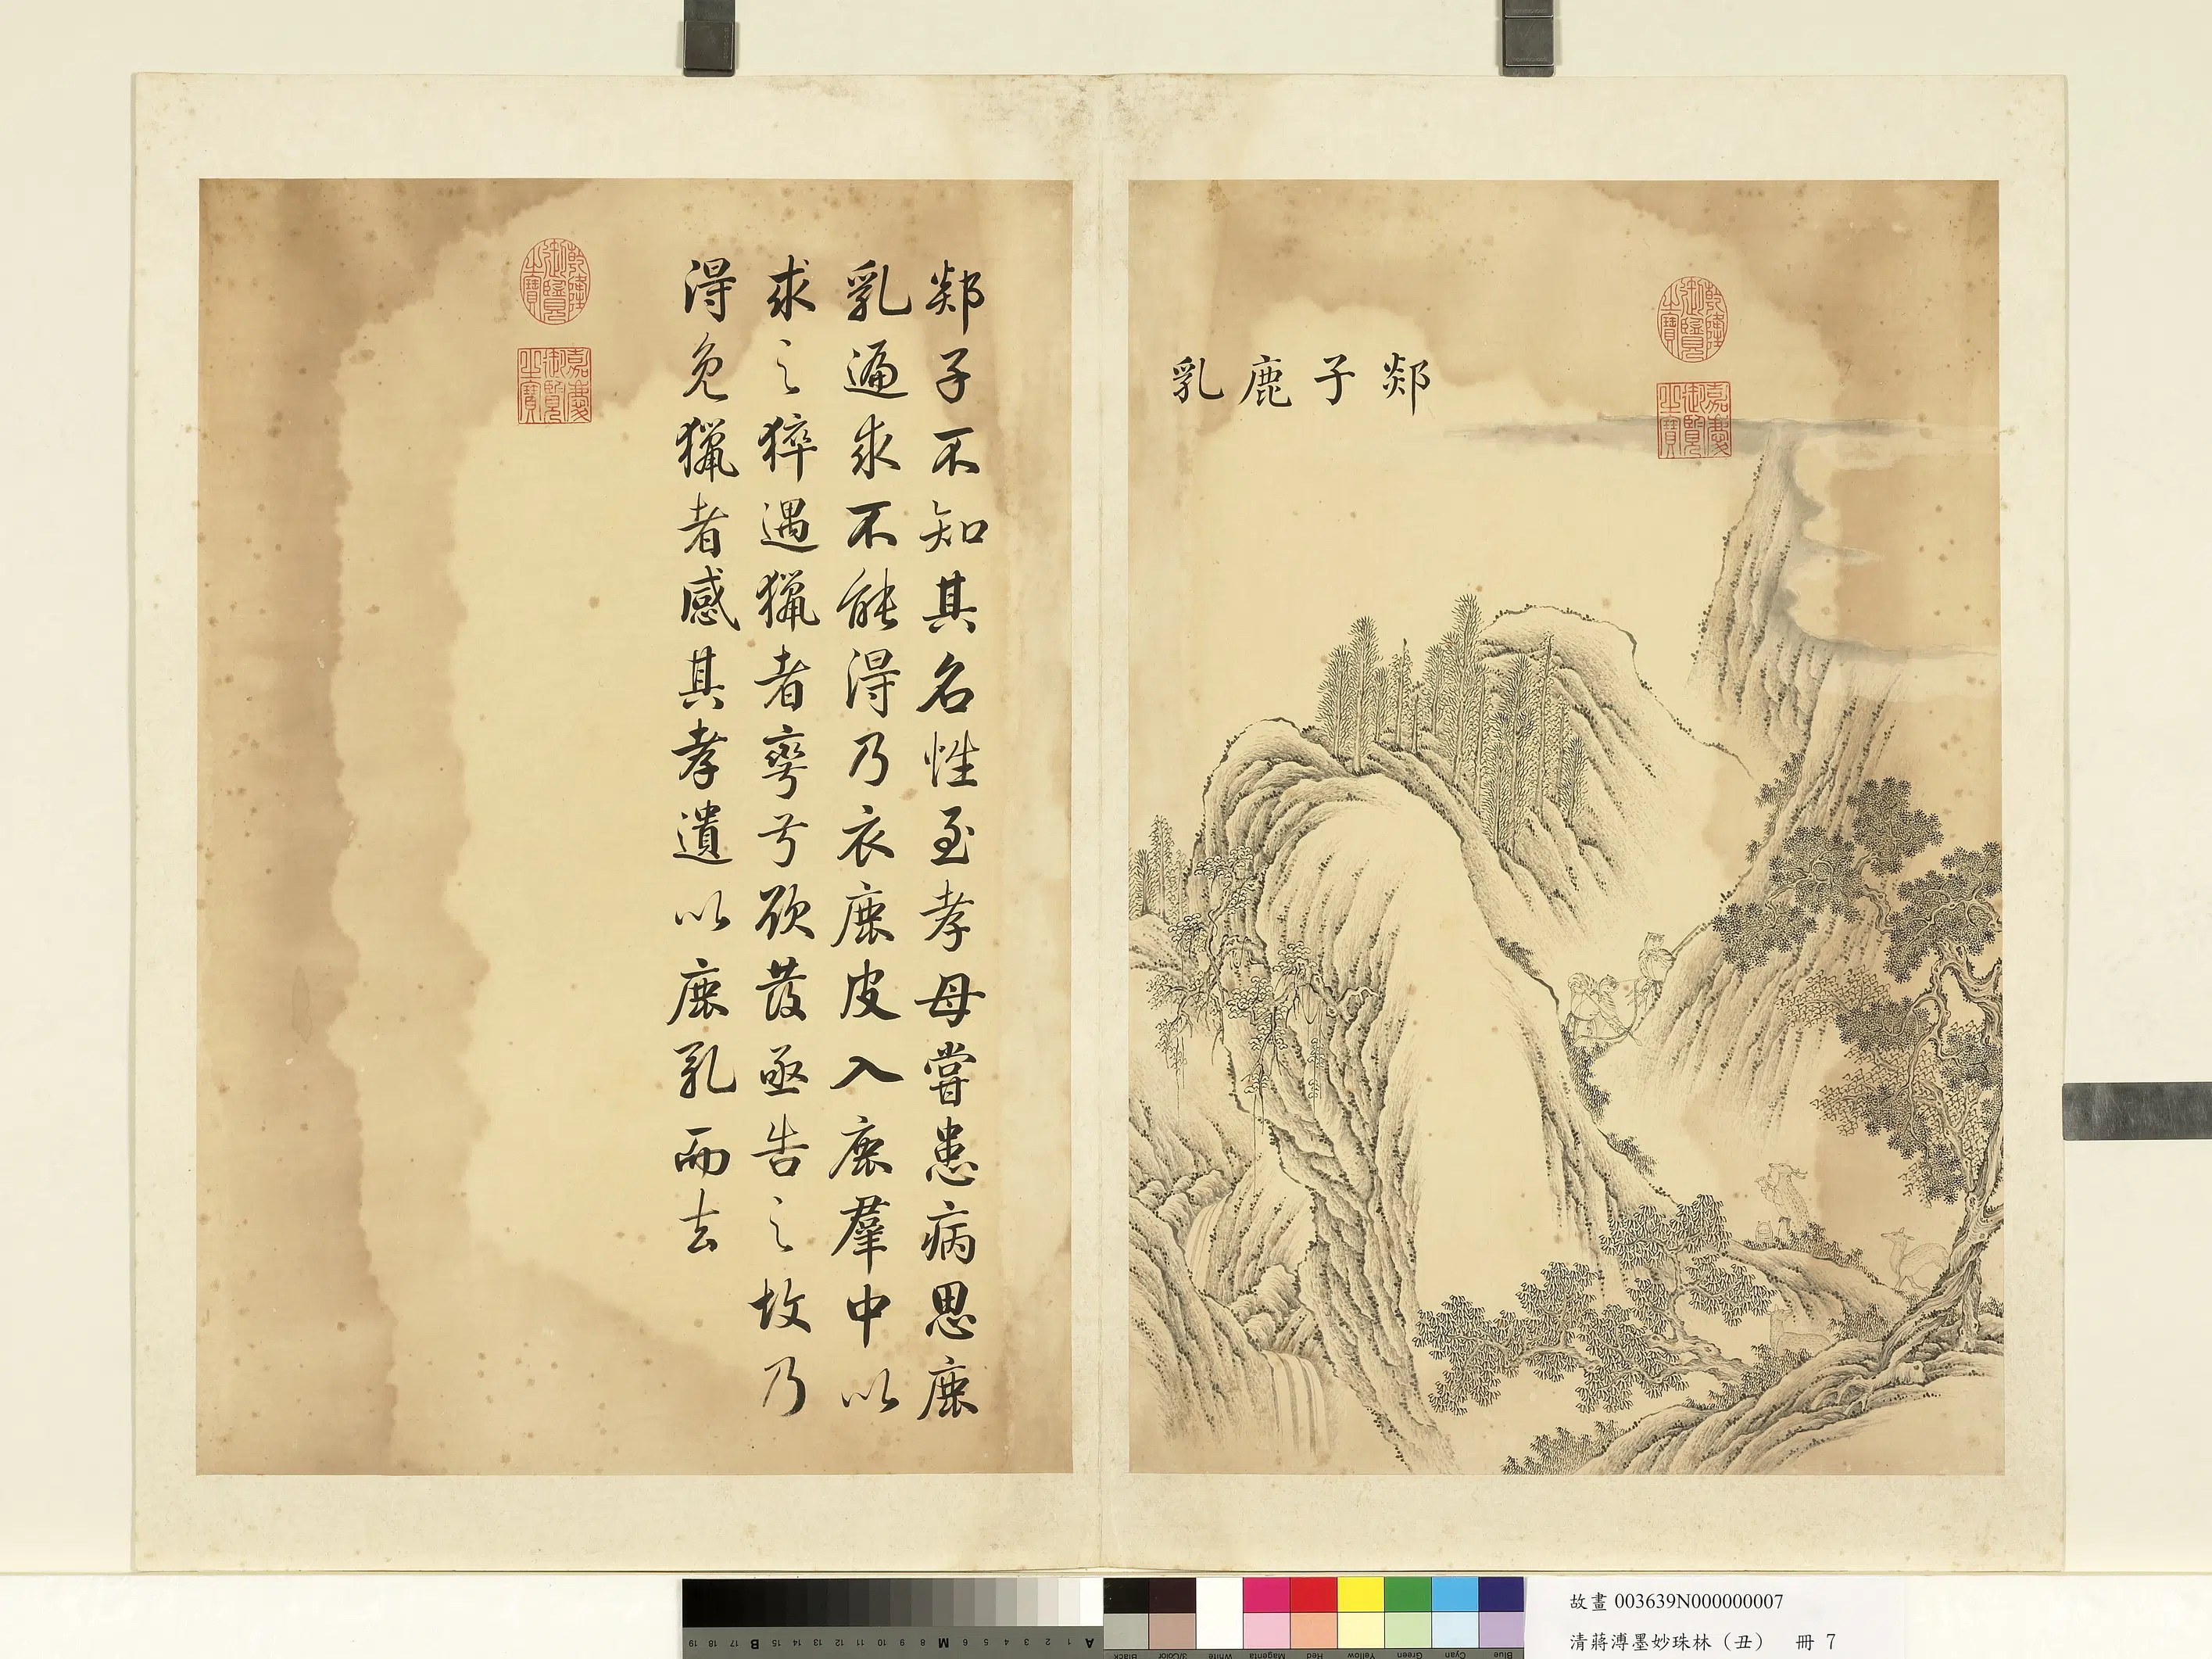 郯子鹿乳
乾隆御覽之寶
嘉慶御覽之寶
郯子不知其名性至孝母嘗患病思鹿
乳遍求不能得乃衣鹿皮入鹿羣中以
求之猝遇獵者彎弓欲發亟告之故乃
得免獵者感其孝遺以鹿乳而去
乾隆御覽之寶
嘉慶御覽之寶
故畫 003639N000000007
清蔣溥墨妙珠林（丑） 冊 7
19 18 17 B 15 14 13 12 11 10 9 8 M 6 5 4 3 2 1 A
Black 3/Color White Magenta Red Yellow Green Cyan Blue